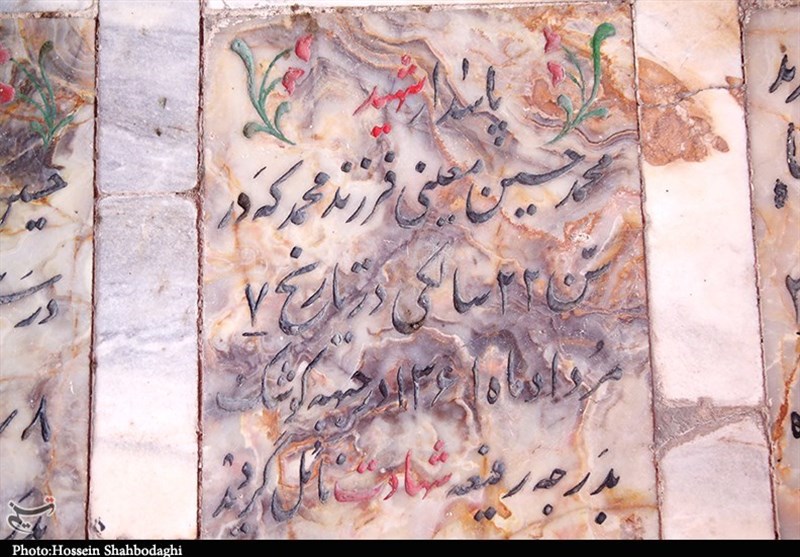 پاسدار شهید
محمد حسین معینی فرزند محمد که در
سن ۲۲ سالگی در تاریخ ۷
مرداد ماه ۱۳۶۱ در جبهه کوشک
بدرجه رفیعه شهادت نائل گردید
حسین
در سن
۸
Photo:Hossein Shahbodaghi